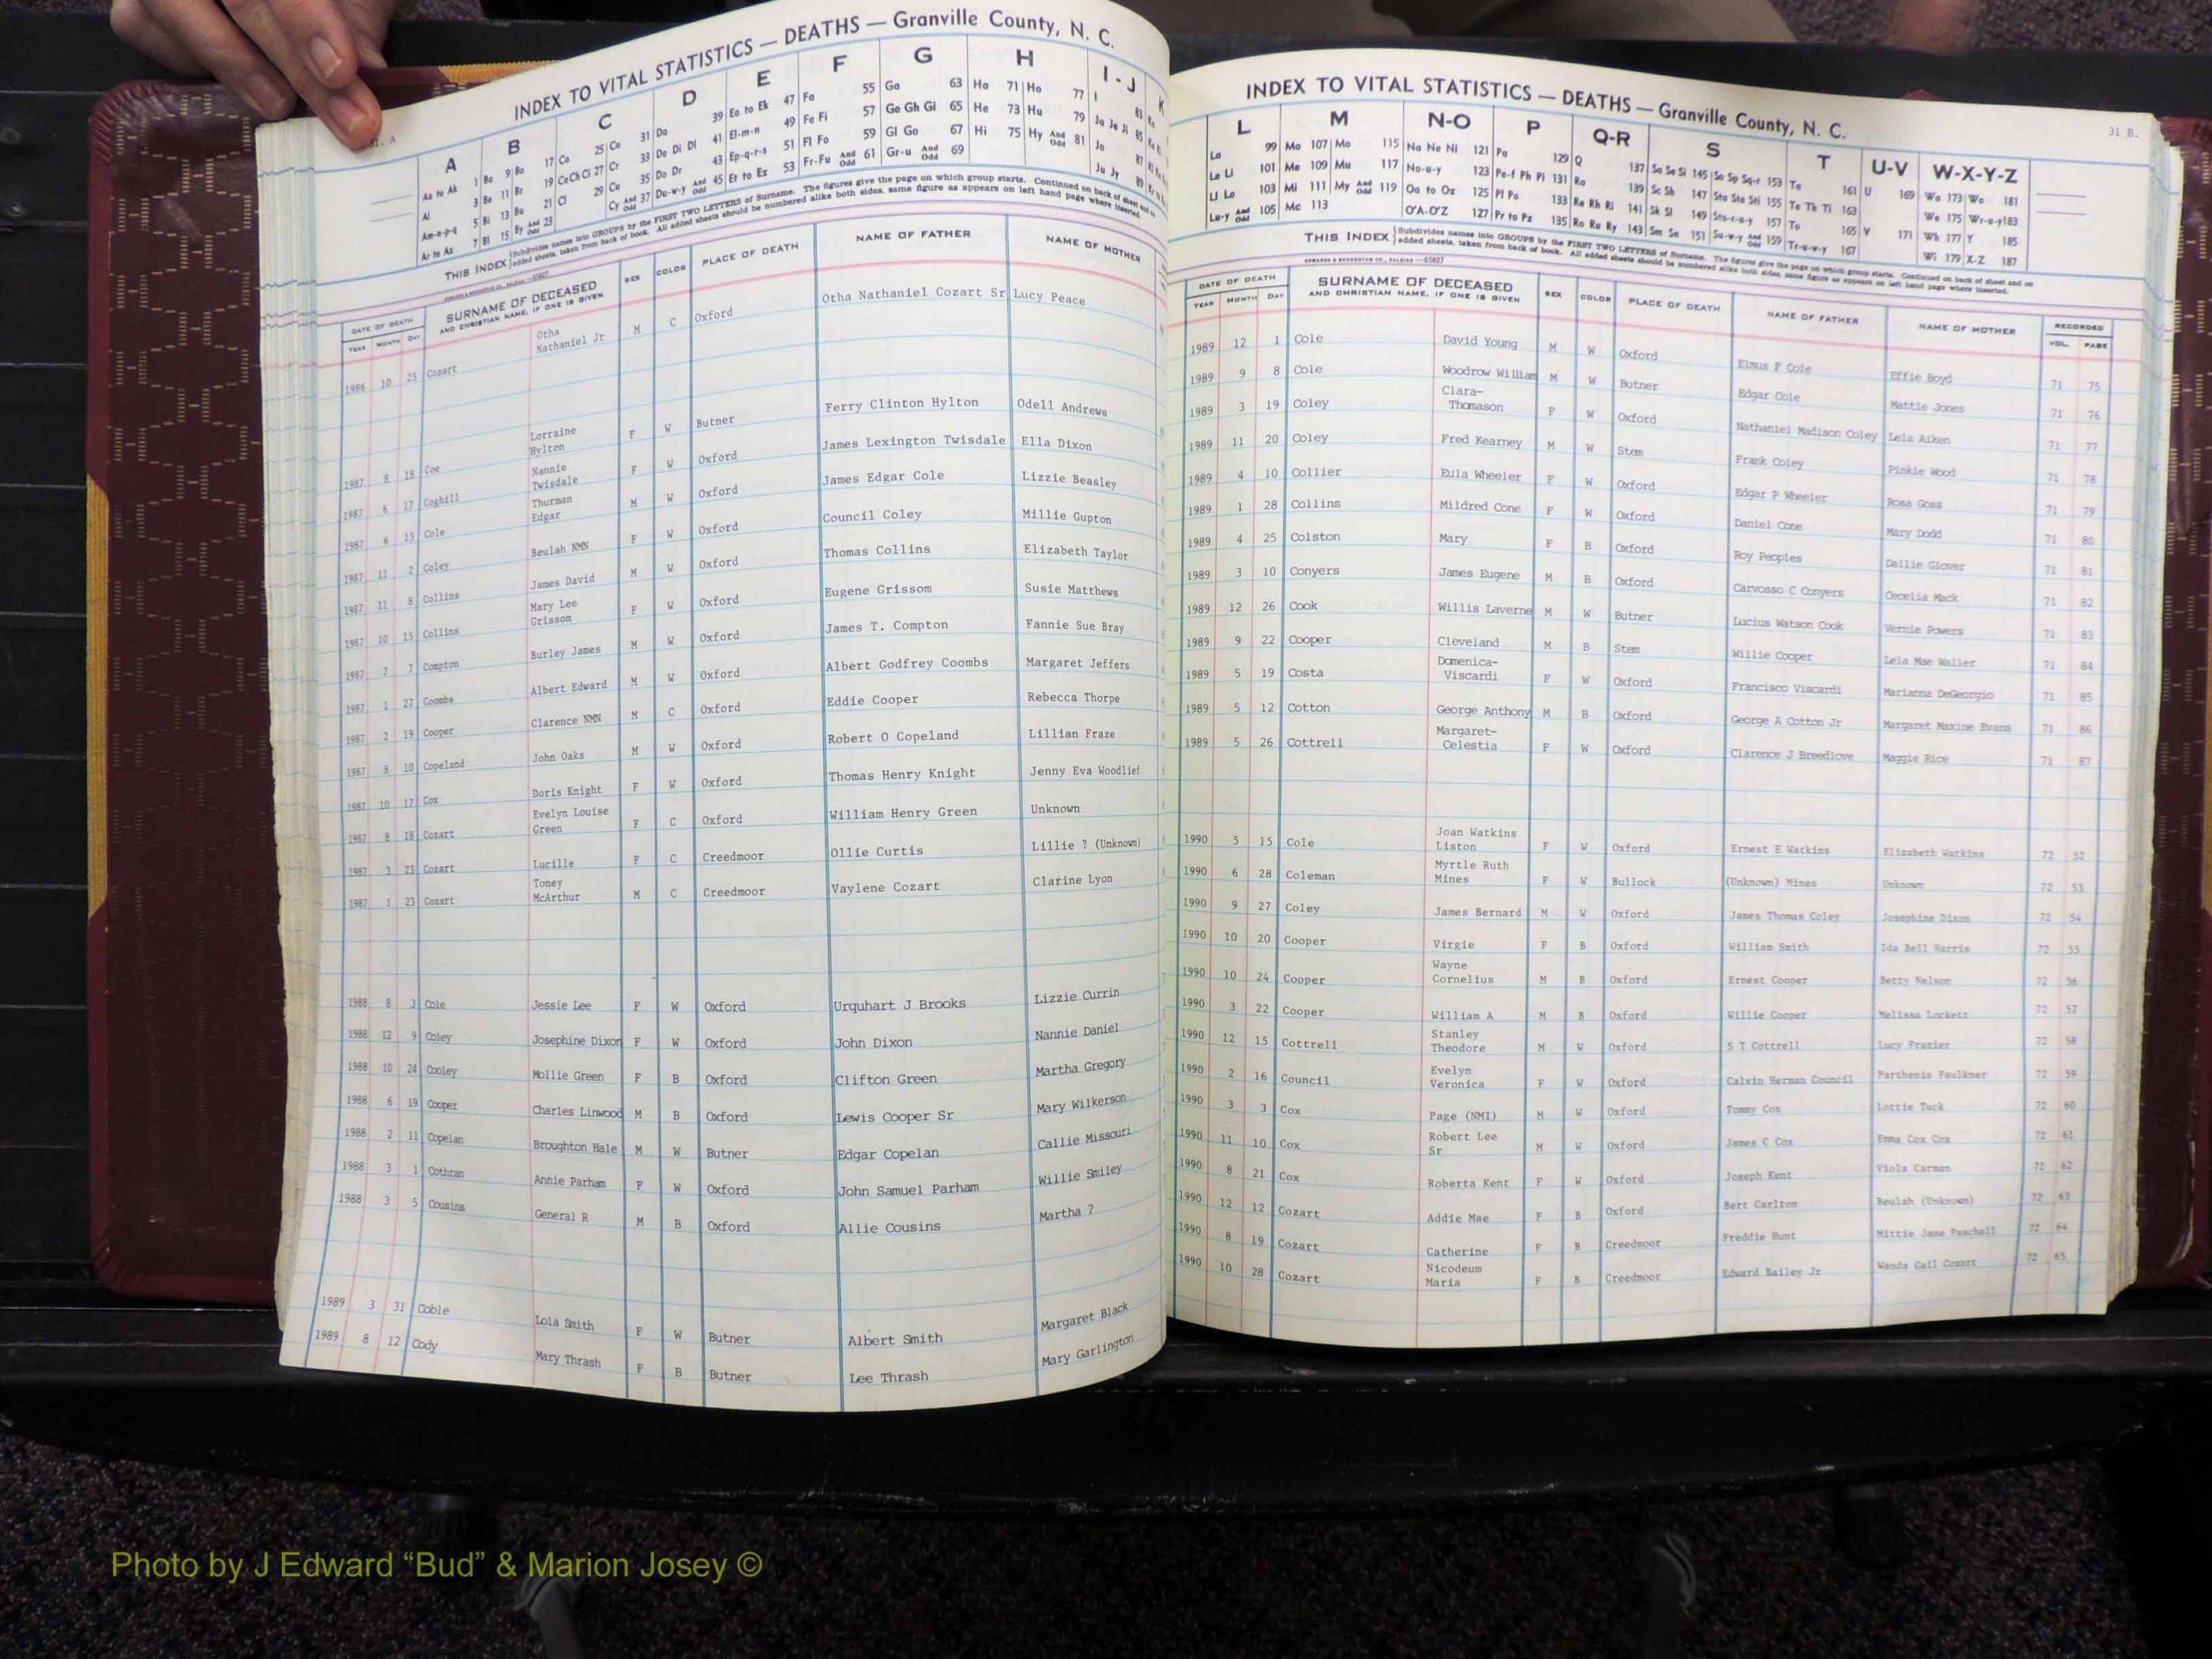 INDEX TO VITAL STATISTICS — DEATHS — Granville County, N. C.
31. A
A B C D E F G H I - J K
Aa to Ak 1 Ba 9 Bo 17 Ca 25 Co 31 Da 39 Ea to Ek 47 Fa 55 Ga 63 Ha 71 Ho 77 I 83
Al 3 Be 11 Br 19 Ce Ch Ci 27 Cr 33 De Di Dl 41 El-m-n 49 Fe Fi 57 Ge Gh Gi 65 He 73 Hu 79 Ja Je Ji 85
Am-n-p-q 5 Bi 13 Bu 21 Cl 29 Cu 35 Do Dr 43 Ep-q-r-s 51 Fl Fo 59 Gl Go 67 Hi 75 Hy And Odd 81 Jo 87
Ar to Az 7 Bl 15 By And Odd 23 Cy And Odd 37 Du-w-y And Odd 45 Et to Ez 53 Fr-Fu And Odd 61 Gr-u And Odd 69 Ju Jy 89
THIS INDEX Subdivides names into GROUPS by the FIRST TWO LETTERS of Surname. The figures give the page on which group starts. Continued on back of sheet and on
added sheets, taken from back of book. All added sheets should be numbered alike both sides, same figure as appears on left hand page where inserted.
EDWARDS & BROUGHTON CO., RALEIGH —65827
DATE OF DEATH SURNAME OF DECEASED SEX COLOR PLACE OF DEATH NAME OF FATHER NAME OF MOTHER
YEAR MONTH DAY AND CHRISTIAN NAME, IF ONE IS GIVEN
1986 10 25 Cozart Otha Nathaniel Jr M C Oxford Otha Nathaniel Cozart Sr Lucy Peace
1987 8 18 Coe Lorraine Hylton F W Butner Ferry Clinton Hylton Odell Andrews
1987 6 17 Coghill Nannie Twisdale F W Oxford James Lexington Twisdale Ella Dixon
1987 6 15 Cole Thurman Edgar M W Oxford James Edgar Cole Lizzie Beasley
1987 11 2 Coley Beulah NMN F W Oxford Council Coley Millie Gupton
1987 11 8 Collins James David M W Oxford Thomas Collins Elizabeth Taylor
1987 10 15 Collins Mary Lee Grissom F W Oxford Eugene Grissom Susie Matthews
1987 7 7 Compton Burley James M W Oxford James T. Compton Fannie Sue Bray
1987 1 27 Coombs Albert Edward M W Oxford Albert Godfrey Coombs Margaret Jeffers
1987 2 19 Cooper Clarence NMN M C Oxford Eddie Cooper Rebecca Thorpe
1987 8 10 Copeland John Oaks M W Oxford Robert O Copeland Lillian Fraze
1987 10 17 Cox Doris Knight F W Oxford Thomas Henry Knight Jenny Eva Woodlief
1987 8 18 Cozart Evelyn Louise Green F C Oxford William Henry Green Unknown
1987 3 23 Cozart Lucille F C Creedmoor Ollie Curtis Lillie ? (Unknown)
1987 1 23 Cozart Toney McArthur M C Creedmoor Vaylene Cozart Clarine Lyon
1988 8 3 Cole Jessie Lee F W Oxford Urquhart J Brooks Lizzie Currin
1988 12 9 Coley Josephine Dixon F W Oxford John Dixon Nannie Daniel
1988 10 24 Cooley Mollie Green F B Oxford Clifton Green Martha Gregory
1988 6 19 Cooper Charles Linwood M B Oxford Lewis Cooper Sr Mary Wilkerson
1988 2 11 Copelan Broughton Hale M W Butner Edgar Copelan Callie Missouri
1988 3 1 Cothran Annie Parham F W Oxford John Samuel Parham Willie Smiley
1988 3 5 Cousins General R M B Oxford Allie Cousins Martha ?
1989 3 31 Coble Lola Smith F W Butner Albert Smith Margaret Black
1989 8 12 Cody Mary Thrash F B Butner Lee Thrash Mary Garlington
INDEX TO VITAL STATISTICS — DEATHS — Granville County, N. C.
31 B.
L M N-O P Q-R S T U-V W-X-Y-Z
La 99 Ma 107 Mo 115 Na Ne Ni 121 Pa 129 Q 137 Sa Se Si 145 Sa Sp Sq-r 153 Ta 161 U 169 Wa 173 Wo 181
Le Li 101 Me 109 Mu 117 No-u-y 123 Pe-f Ph Pi 131 Ra 139 Sc Sh 147 Sta Ste Sti 155 Te Th Ti 163 We 175 Wr-u-y 183
Ll Lo 103 Mi 111 My And Odd 119 Oa to Oz 125 Pl Po 133 Re Rh Ri 141 Sk Sl 149 Sto-r-u-y 157 To 165 V 171 Wh 177 Y 185
Lu-y And Odd 105 Mc 113 O'A-O'Z 127 Pr to Pz 135 Ro Ru Ry 143 Sm Sn 151 Su-w-y And Odd 159 Tr-u-w-y 167 Wi 179 X-Z 187
THIS INDEX Subdivides names into GROUPS by the FIRST TWO LETTERS of Surname. The figures give the page on which group starts. Continued on back of sheet and on
added sheets, taken from back of book. All added sheets should be numbered alike both sides, same figure as appears on left hand page where inserted.
EDWARDS & BROUGHTON CO., RALEIGH —65827
DATE OF DEATH SURNAME OF DECEASED SEX COLOR PLACE OF DEATH NAME OF FATHER NAME OF MOTHER RECORDED
YEAR MONTH DAY AND CHRISTIAN NAME, IF ONE IS GIVEN VOL. PAGE
1989 12 1 Cole David Young M W Oxford Elmus F Cole Effie Boyd 71 75
1989 9 8 Cole Woodrow William M W Butner Edgar Cole Mattie Jones 71 76
1989 3 19 Coley Clara-Thomason F W Oxford Nathaniel Madison Coley Lela Aiken 71 77
1989 11 20 Coley Fred Kearney M W Stem Frank Coley Pinkie Wood 71 78
1989 4 10 Collier Eula Wheeler F W Oxford Edgar P Wheeler Rosa Goss 71 79
1989 1 28 Collins Mildred Cone F W Oxford Daniel Cone Mary Dodd 71 80
1989 4 25 Colston Mary F B Oxford Roy Peoples Dallie Glover 71 81
1989 3 10 Conyers James Eugene M B Oxford Carvosso C Conyers Cecelia Mack 71 82
1989 12 26 Cook Willis Laverne M W Butner Lucius Watson Cook Vernie Powers 71 83
1989 9 22 Cooper Cleveland M B Stem Willie Cooper Lela Mae Waller 71 84
1989 5 19 Costa Domenica-Viscardi F W Oxford Francisco Viscardi Marianna DeGeorgio 71 85
1989 5 12 Cotton George Anthony M B Oxford George A Cotton Jr Margaret Maxine Evans 71 86
1989 5 26 Cottrell Margaret-Celestia F W Oxford Clarence J Breedlove Maggie Rice 71 87
1990 5 15 Cole Joan Watkins Liston F W Oxford Ernest E Watkins Elizabeth Watkins 72 52
1990 6 28 Coleman Myrtle Ruth Mines F W Bullock (Unknown) Mines Unknown 72 53
1990 9 27 Coley James Bernard M W Oxford James Thomas Coley Josephine Dixon 72 54
1990 10 20 Cooper Virgie F B Oxford William Smith Ida Bell Harris 72 55
1990 10 24 Cooper Wayne Cornelius M B Oxford Ernest Cooper Betty Nelson 72 56
1990 3 22 Cooper William A M B Oxford Willie Cooper Melissa Lockett 72 57
1990 12 15 Cottrell Stanley Theodore M W Oxford S T Cottrell Lucy Frazier 72 58
1990 2 16 Council Evelyn Veronica F W Oxford Calvin Herman Council Parthenia Faulkner 72 59
1990 3 3 Cox Page (NMI) M W Oxford Tommy Cox Lottie Tuck 72 60
1990 11 10 Cox Robert Lee Sr M W Oxford James C Cox Emma Cox Cox 72 61
1990 8 21 Cox Roberta Kent F W Oxford Joseph Kent Viola Carman 72 62
1990 12 12 Cozart Addie Mae F B Oxford Bert Carlton Beulah (Unknown) 72 63
1990 8 19 Cozart Catherine F B Creedmoor Freddie Hunt Mittie Jane Paschall 72 64
1990 10 28 Cozart Nicodeum Maria F B Creedmoor Edward Bailey Jr Wanda Gail Cozart 72 65
Photo by J Edward “Bud” & Marion Josey ©